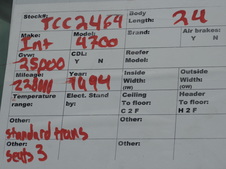 Stock#: TCC2464 Body Length: 24
Make: Int Model: 4700 Brand: Air brakes: Y N
Gvw: 25000 CDL: Y N Reefer Model:
Mileage: Year: 1994 Inside Width: (IW) Outside Width: (OW)
Temperature range: Elect. Stand by: Ceiling To floor: C 2 F Header To floor: H 2 F
Other: Other: Other: Other:
Standard trans
Seats 3